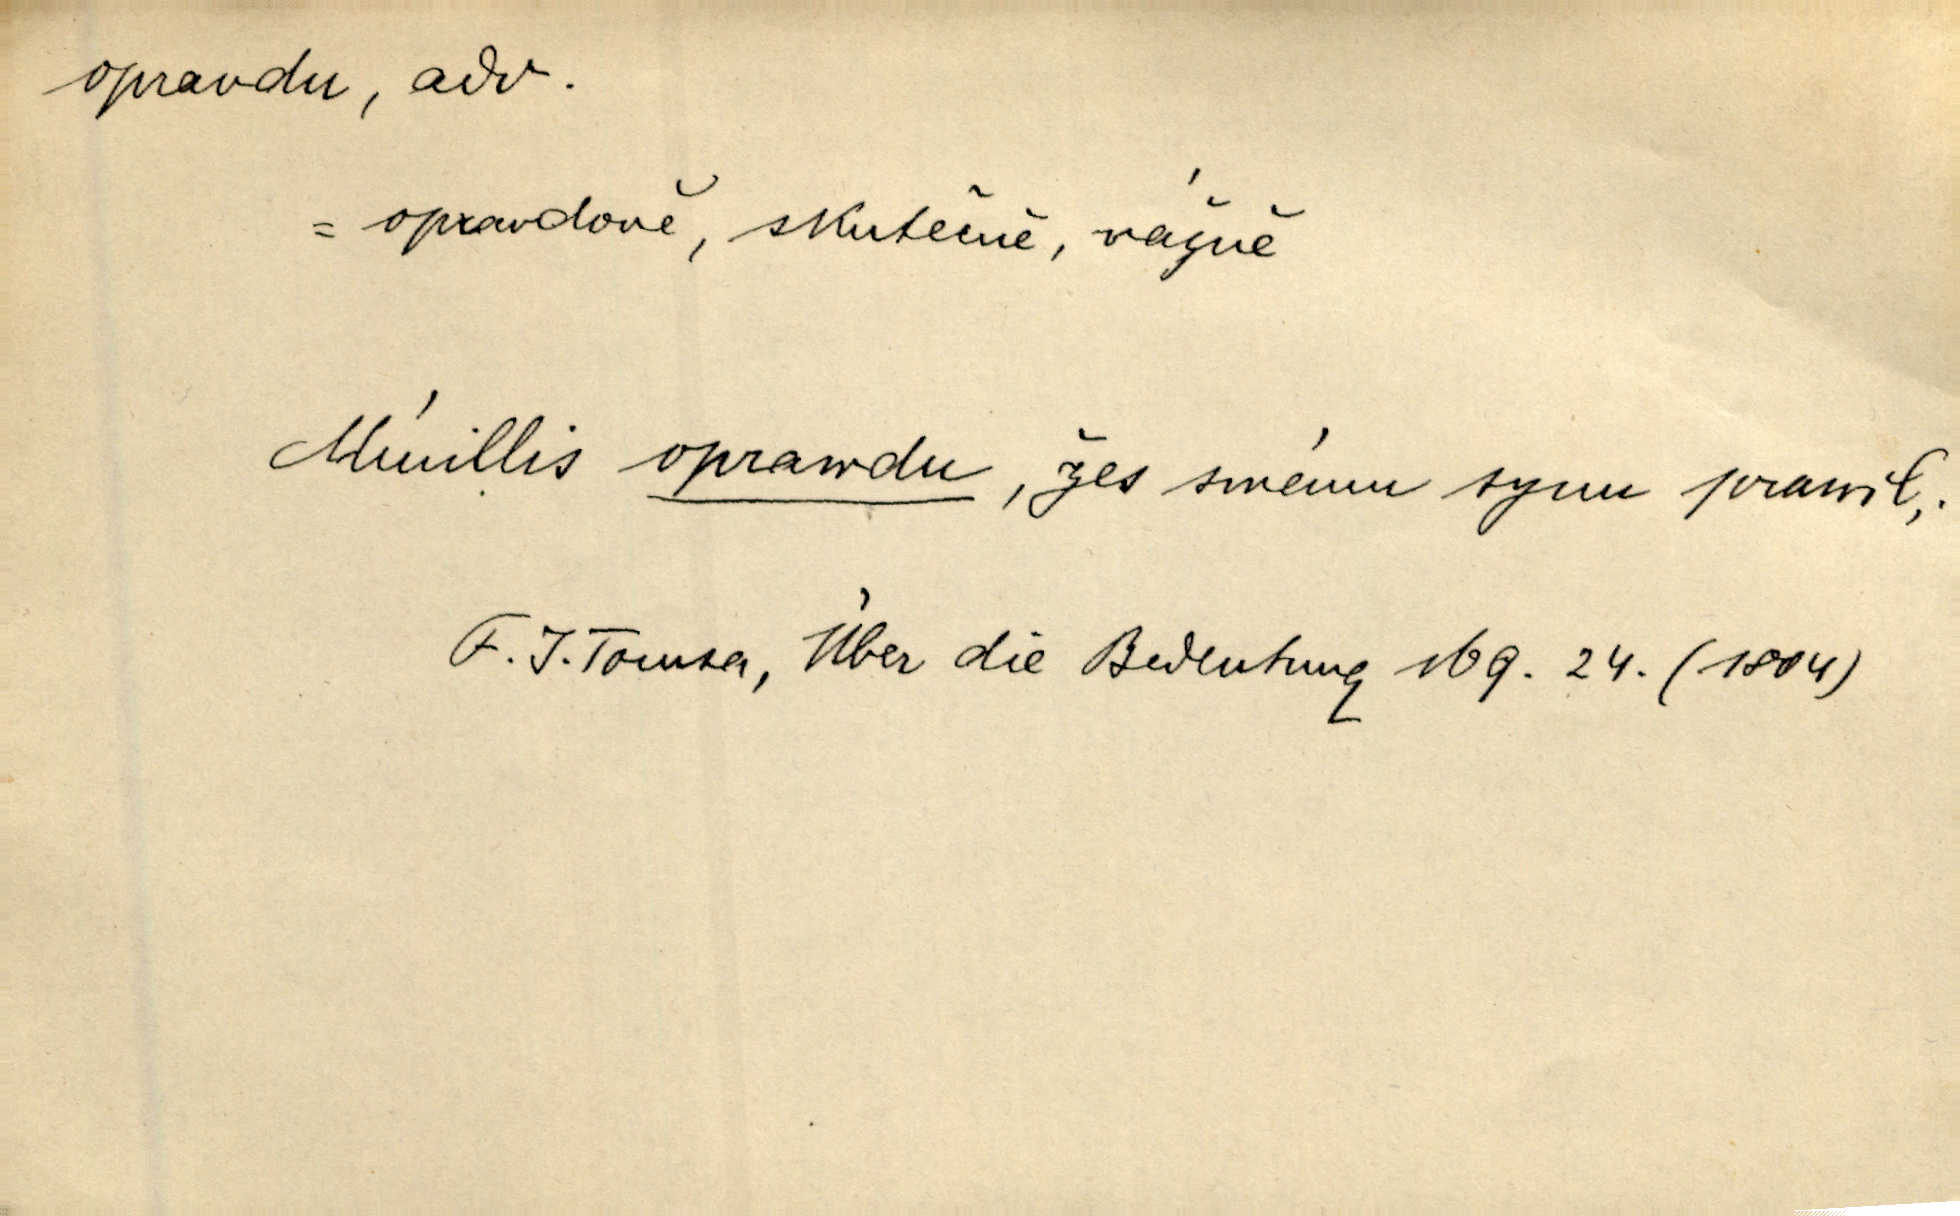 opravdu, adv.
= opravdově, skutečně, vážně
Mínillis oprawdu, žes swému synu prawil,.
F. J. Tomsa, Über die Bedeutung 169. 24. (1804)